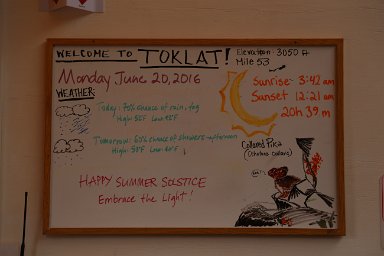 WELCOME TO TOKLAT!
Elevation: 3050 ft
Mile 53
Monday June 20, 2016
Sunrise - 3:42 am
Sunset - 12:21 am
20h 39 m
WEATHER:
Today: 70% chance of rain, fog
High: 55°F Low: 42°F
Tomorrow: 60% chance of showers - afternoon
High: 58°F Low: 42°F
Collared Pika
(Ochotona collaris)
HAPPY SUMMER SOLSTICE
Embrace the Light!